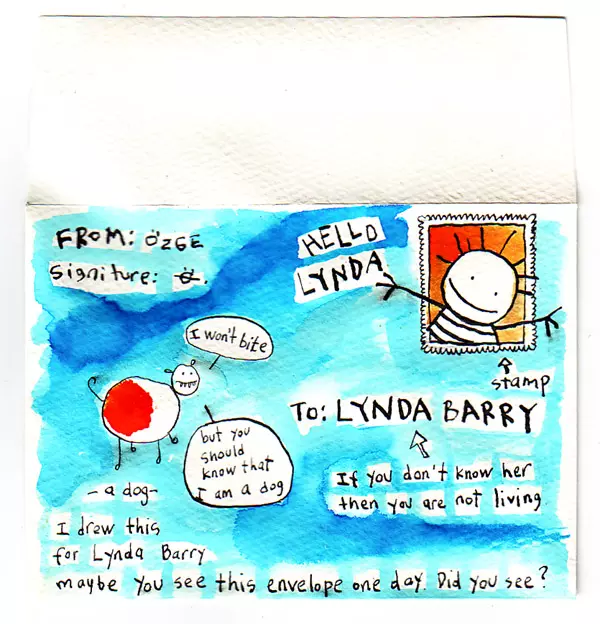 FROM: ÖZGE
Signiture: Ö.
HELLO
LYNDA
stamp
I won't bite
TO: LYNDA BARRY
but you
should
know that
I am a dog
If you don't know her
then you are not living
- a dog -
I drew this
for Lynda Barry
maybe you see this envelope one day. Did you see?